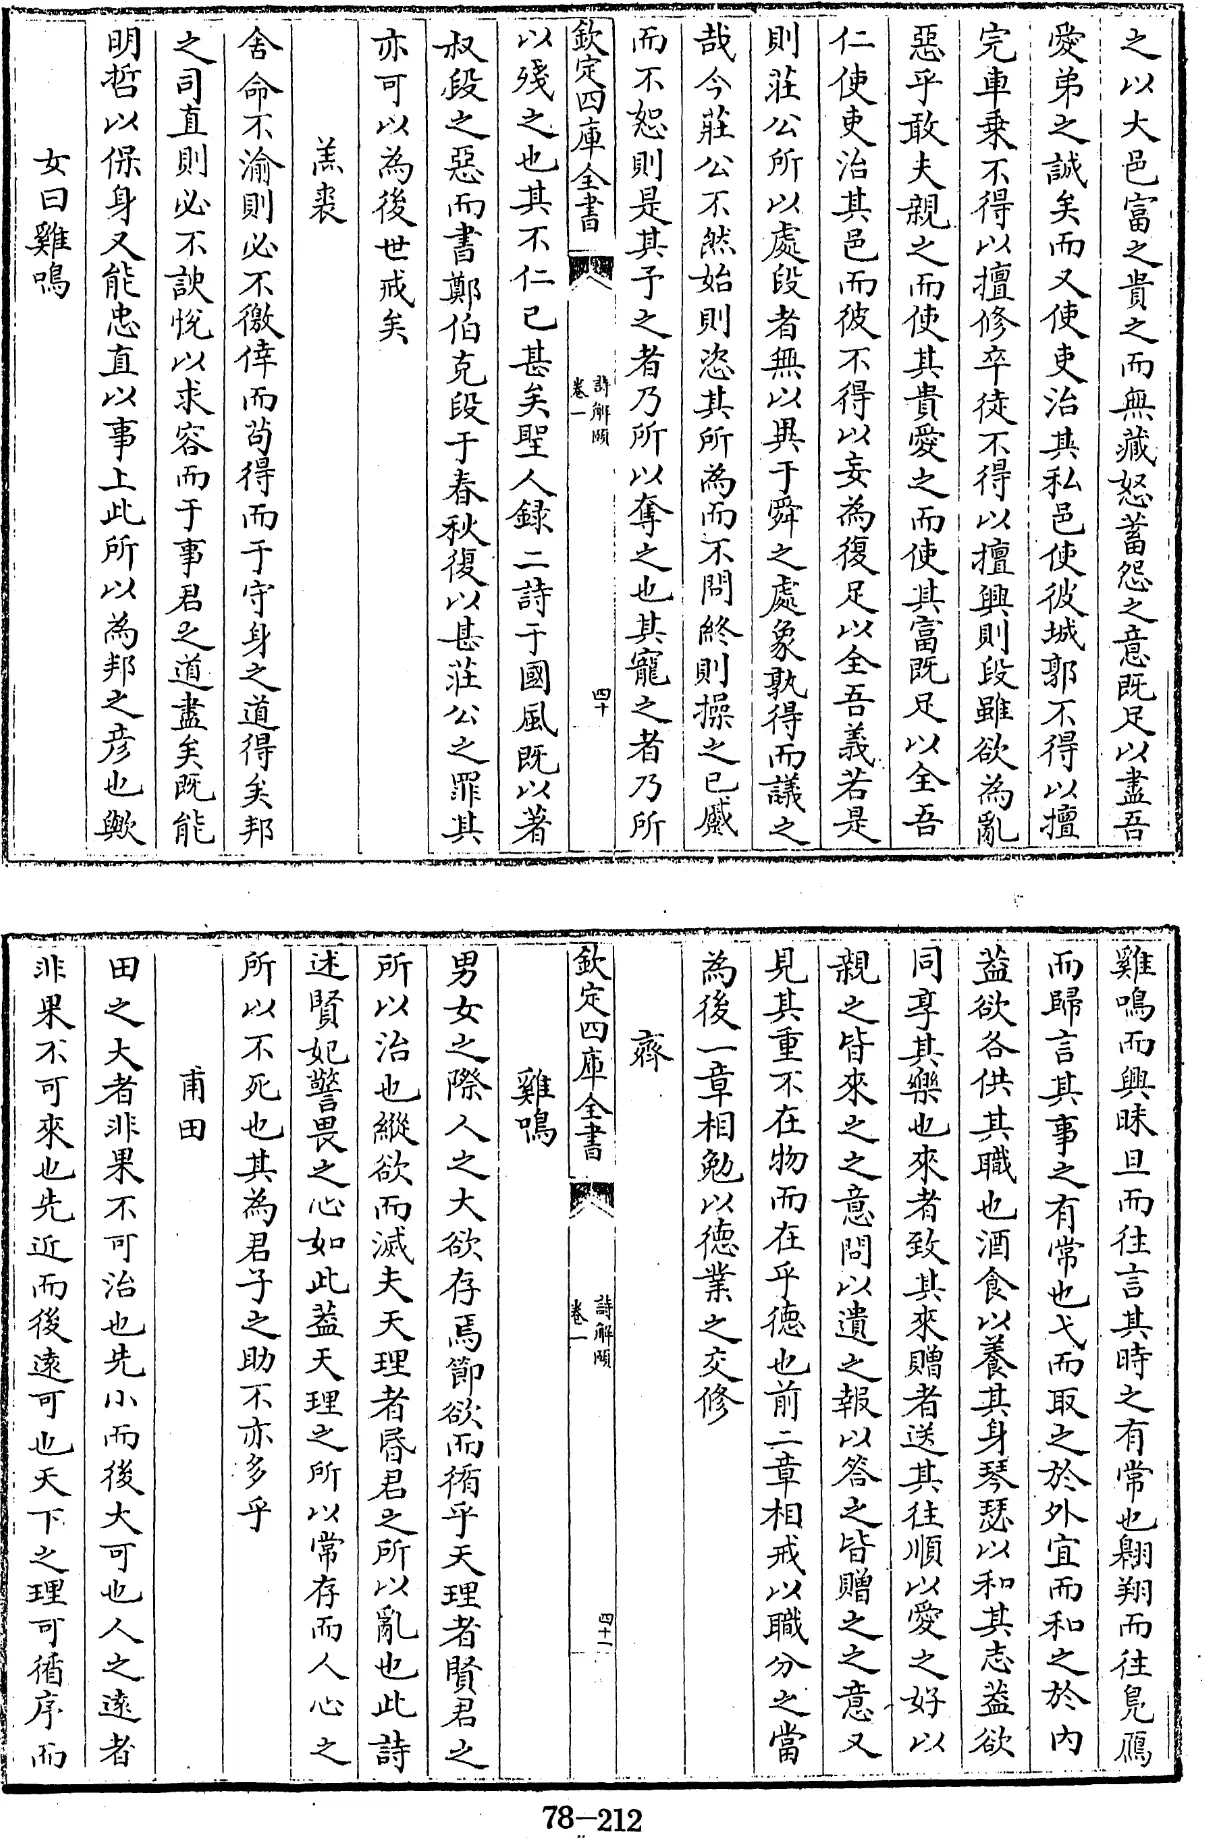 之以大邑富之貴之而無藏怒蓄怨之意既足以盡吾
愛弟之誠矣而又使吏治其私邑使彼城郭不得以擅
完車乗不得以擅修卒徒不得以擅興則段雖欲為亂
惡乎敢夫親之而使其貴愛之而使其富既足以全吾
仁使吏治其邑而彼不得以妄為復足以全吾義若是
則莊公所以處段者無以異于舜之處象孰得而議之
哉今莊公不然始則恣其所為而不問終則操之已蹙
而不恕則是其予之者乃所以奪之也其寵之者乃所
欽定四庫全書
詩解頤
卷一
四十
以殘之也其不仁已甚矣聖人録二詩于國風既以著
叔段之惡而書鄭伯克段于春秋復以甚莊公之罪其
亦可以為後世戒矣
羔裘
舍命不渝則必不徼倖而茍得而于守身之道得矣邦
之司直則必不諛悅以求容而于事君之道盡矣既能
明哲以保身又能忠直以事上此所以為邦之彦也歟
女曰雞鳴
雞鳴而興昧旦而往言其時之有常也翺翔而往鳬鴈
而歸言其事之有常也弋而取之於外宜而和之於内
葢欲各供其職也酒食以養其身琴瑟以和其志葢欲
同享其樂也來者致其來贈者送其往順以愛之好以
親之皆來之之意問以遺之報以答之皆贈之之意又
見其重不在物而在乎德也前二章相戒以職分之當
為後一章相勉以德業之交修
齊
欽定四庫全書
詩解頤
卷一
四十一
雞鳴
男女之際人之大欲存焉節欲而循乎天理者賢君之
所以治也縱欲而滅夫天理者昬君之所以亂也此詩
述賢妃警畏之心如此葢天理之所以常存而人心之
所以不死也其為君子之助不亦多乎
甫田
田之大者非果不可治也先小而後大可也人之逺者
非果不可來也先近而後逺可也天下之理可循序而
78-212